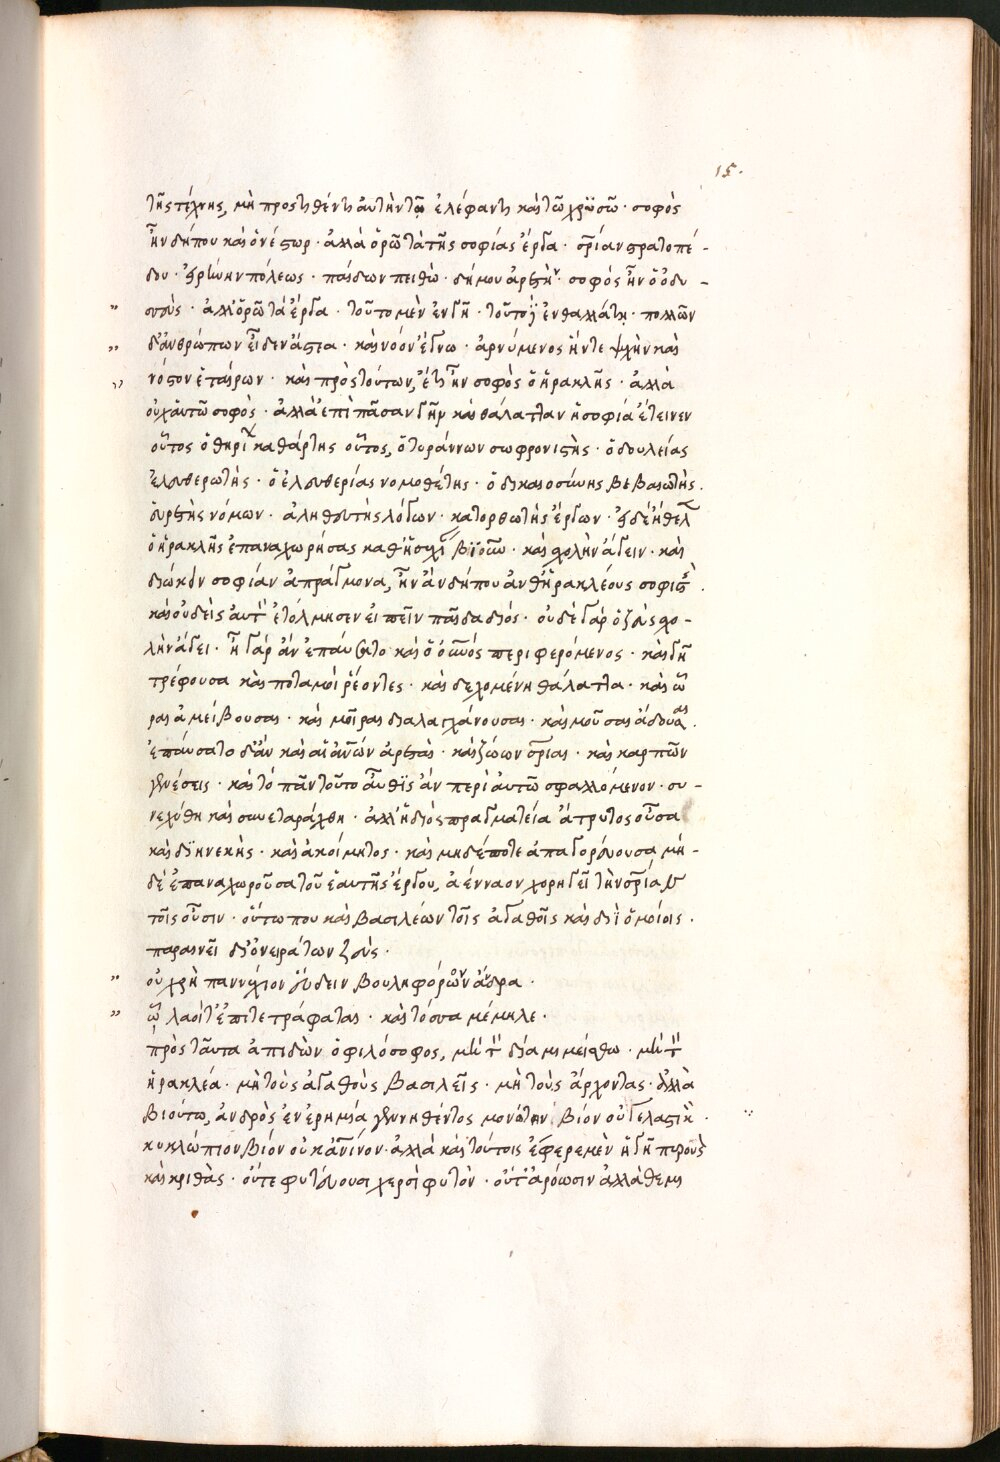 15.
τῆς τέχνης, μὴ προστιθέντι αὐτὴν τῷ ἐλέφαντι καὶ τῷ χρϋσῷ · σοφὸς
ἦν δήπου καὶ ὁ νέστωρ · ἀλλὰ ὁρῶ τὰ τῆς σοφίας ἔργα · σ̅ρίαν στρατοπέ-
δου · εἰρήνην πόλεως · παίδων πειθὼ · δήμου ἀρετήν · σοφὸς ἦν ὁ ὀδυ-
σσεὺς · ἀλλ' ὁρῶ τὰ ἔργα · τοῦτο μὲν ἐν γῆ · τοῦτο δ' ἐν θαλλάτη · πολλῶν
δ' ἀνθρώπων εἶδεν ἄστεα · καὶ νόον ἔγνω · ἀρνύμενος ἥντε ψχὴν καὶ
νόστον ἑταίρων · καὶ πρὸς τούτων, ἔτι ἦν σοφὸς ὁ ἡρακλῆς · ἀλλὰ
οὐχ αὑτῷ σοφὸς · ἀλλὰ ἐπὶ πᾶσαν γῆν καὶ θάλατταν ἡ σοφία ἔτεινεν
οὗτος ὁ θηρίων καθάρτης οὗτος, ὁ τυράννων σωφρονιστὴς · ὁ δουλείας
ἐλευθερωτὴς · ὁ ἐλευθερίας νομοθέτης · ὁ δικαιοσύνης βεβαιωτὴς.
εὑρετὴς νόμων · ἀληθευτὴς λόγων · κατορθωτὴς ἔργων · εἰ δὲ ἤθελεν
ὁ ἡρακλῆς ἐπαναχωρήσας καθ' ἡσυχίαν βϊοῦν · καὶ σχολὴν ἄγειν · καὶ
διώκειν σοφίαν ἀπράγμονα, ἦν ἂν δήπου ἀνθ' ἡρακλέους σοφιστὴς.
καὶ οὐδεὶς αὐτὸν ἐτόλμησεν εἰπεῖν παῖδα διός · οὐδὲ γὰρ ὁ ζεὺς σχο-
λὴν ἄγει · ἦ γὰρ ἂν ἐπαύσατο καὶ ὁ οὐνός περιφερόμενος · καὶ γῆ
τρέφουσα καὶ ποταμοὶ ῥέοντες · καὶ δεχομένη θάλαττα · καὶ ὧ
ραι ἀμείβουσαι · καὶ μοῖραι διαλαγχάνουσαι · καὶ μοῦσαι ἄδουσαι.
ἐπαύσατο δ' ἂν καὶ αἱ ἀνῶν ἀρεταὶ · καὶ ζώων σ̅ρίαι · καὶ καρπῶν
γενέσεις · καὶ τὸ πᾶν τοῦτο αὖθϊς ἂν περὶ αὑτῷ σφαλλόμενον · συ-
νεχύθη καὶ συνεταράχθη · ἀλλ' ἡ διὸς πραγματεία ἄτρυτος οὖσα
καὶ δϊηνεκὴς · καὶ ἀκοίμητος · καὶ μηδέποτε ἀπαγορεύουσα μη-
δὲ ἐπαναχωροῦσα τοῦ ἑαυτῆς ἔργου, ἀένναον χορηγεῖ τὴν σ̅ρίαν
τοῖς οὖσιν · οὕτω που καὶ βασιλέων τοῖς ἀγαθοῖς καὶ διῒ ὁμοίοις.
παραινεῖ δι' ὀνειράτων ζεὺς ·
οὐ χρὴ παννύχιον εὕδειν βουληφόρον ἄνδρα ·
ᾧ λαοί τ' ἐπιτετράφαται · καὶ τόσσα μέμηλε ·
πρὸς ταῦτα ἀπιδὼν ὁ φιλόσοφος, μὴ τὸν δία μιμείσθω · μὴ τὸν
ἡρακλέα · μὴ τοὺς ἀγαθοὺς βασιλεῖς · μὴ τοὺς ἄρχοντας · ἀλλὰ
βιούτω, ἀνδρὸς ἐν ἐρημία γεννηθέντος μονώτην βίον οὐ γελαστικὸν ·
κυκλώπιον βίον οὐκ ἀνῖνον · ἀλλὰ καὶ τούτοις ἔφερε μὲν ἡ γῆ πυροὺς
καὶ κριθὰς · οὔτε φυτεύουσι χερσὶ φυτὸν · οὔτ' ἀρόωσιν ἀλλὰ θεμι